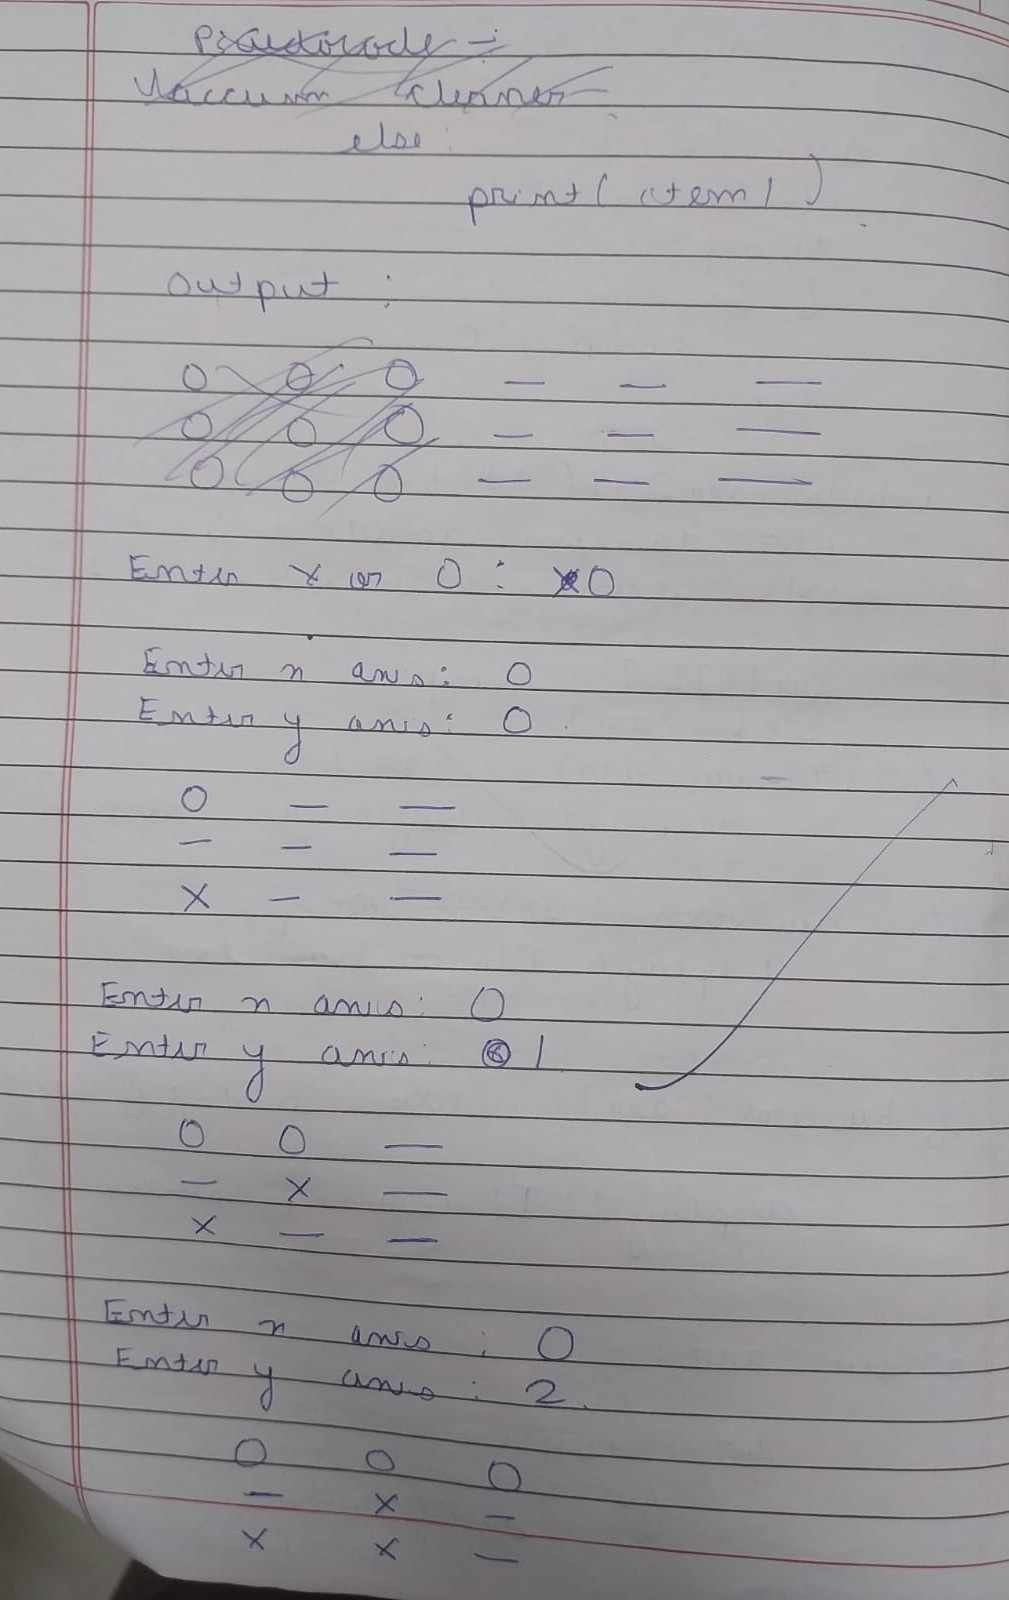 Pseudocode :-
Vaccum cleaner
else
print( item1 )
Output :
O O O — — —
O O O — — —
O O O — — —
Enter x or O : O
Enter x axis: 0
Enter y axis: 0
O — —
— — —
X — —
Enter x axis: 0
Enter y axis: 1
O O —
— X —
X — —
Enter x axis : 0
Enter y axis : 2
O O O
— X —
X X —